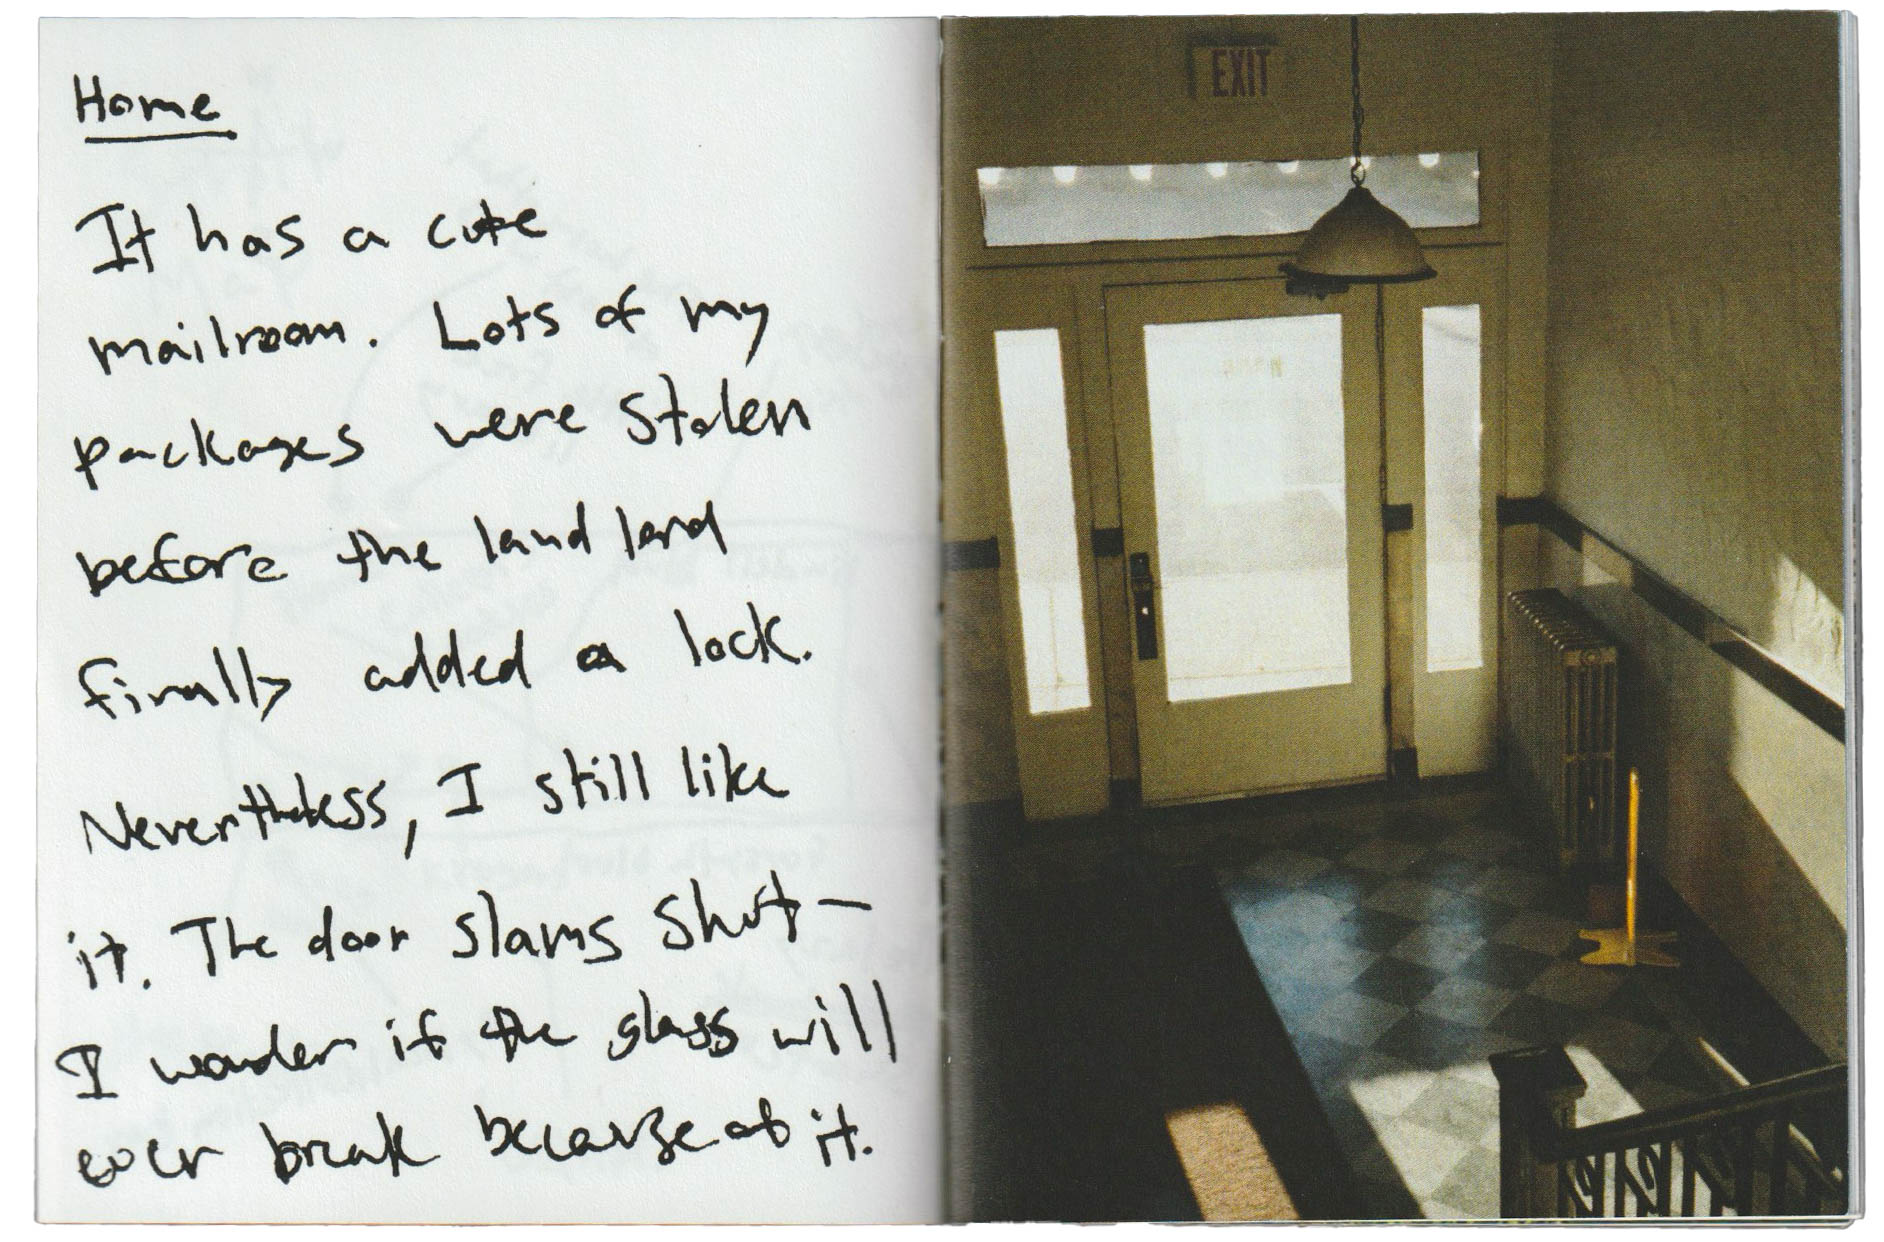 Home
It has a cute
mailroom. Lots of my
packages were stolen
before the landlord
finally added a lock.
Nevertheless, I still like
it. The door slams shut —
I wonder if the glass will
ever break because of it.
EXIT